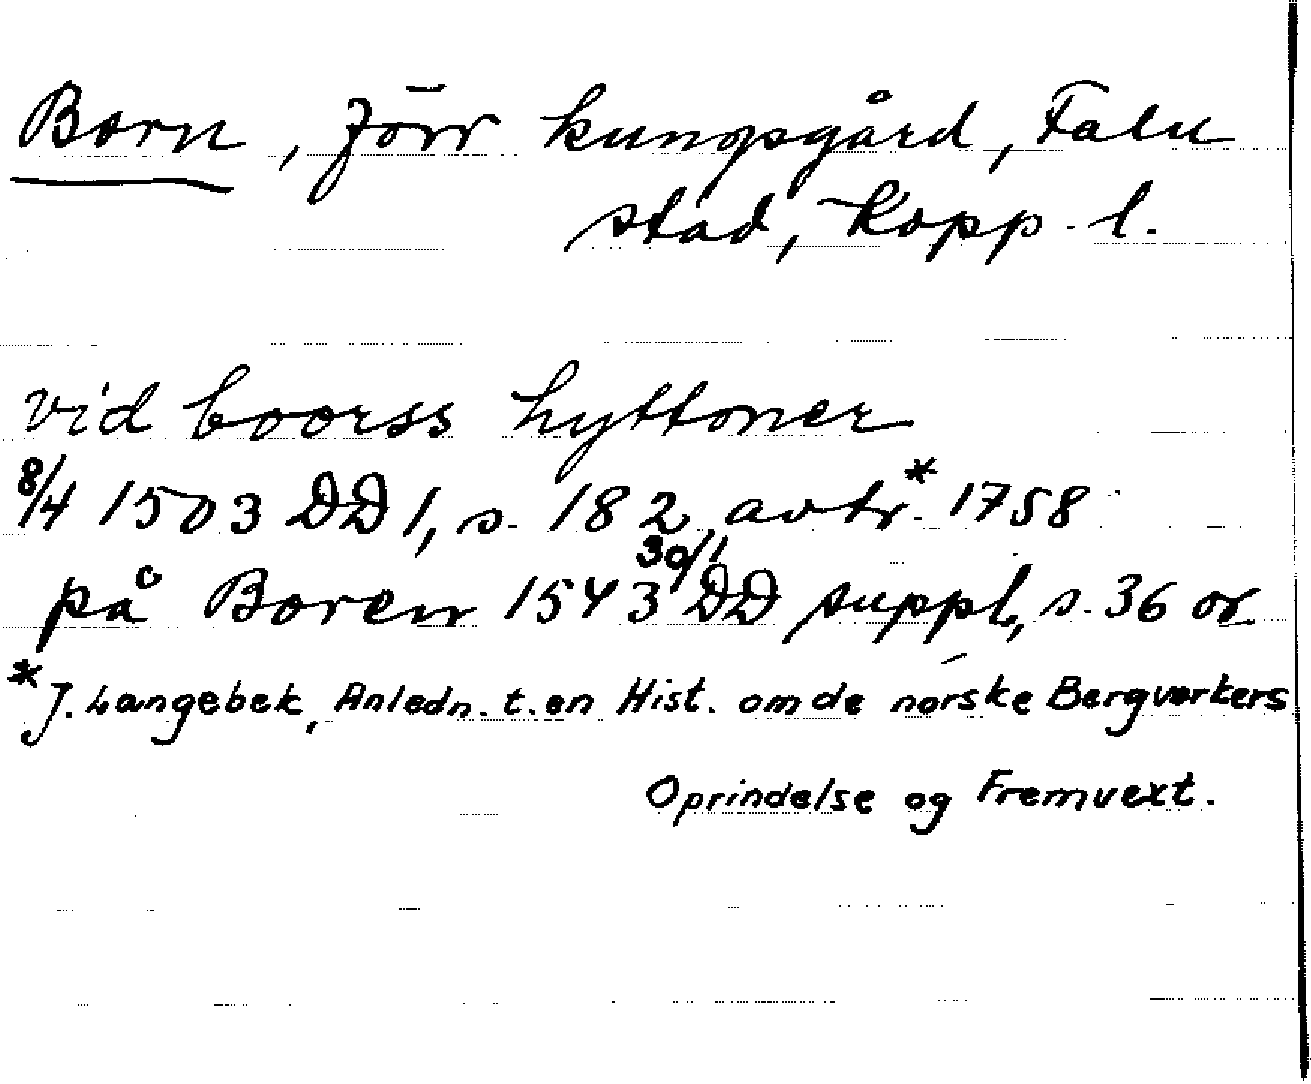 Born, förr kungsgård, Falu
stad, Kopp. l.
vid boorss hyttoner
8/4 1503 DD 1, s. 182, avtr.* 1758
på Boren 1543 30/1 DD suppl., s. 36 or.
* J. Langebek, Anledn. t. en Hist. om de norske Bergverkers
Oprindelse og Fremvext.